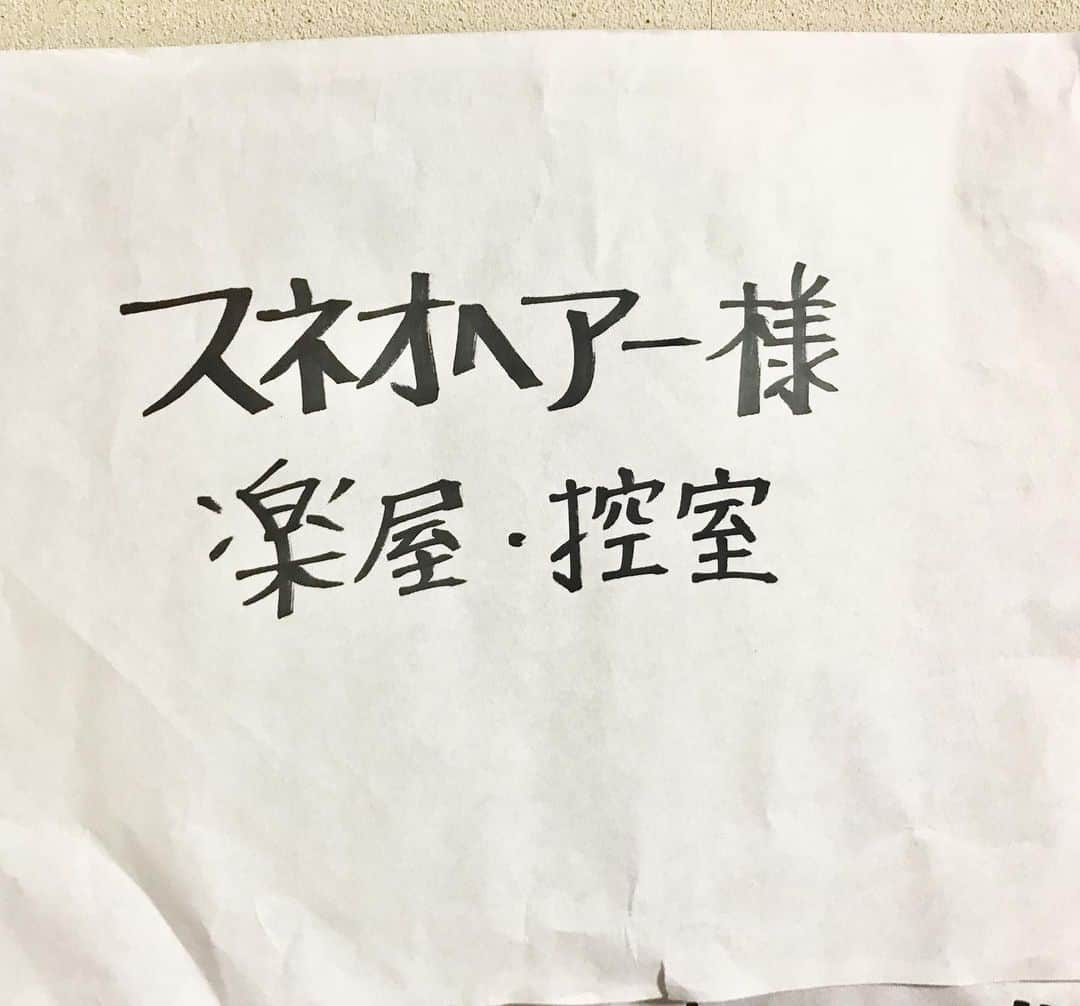 スネオヘアー様
楽屋・控室